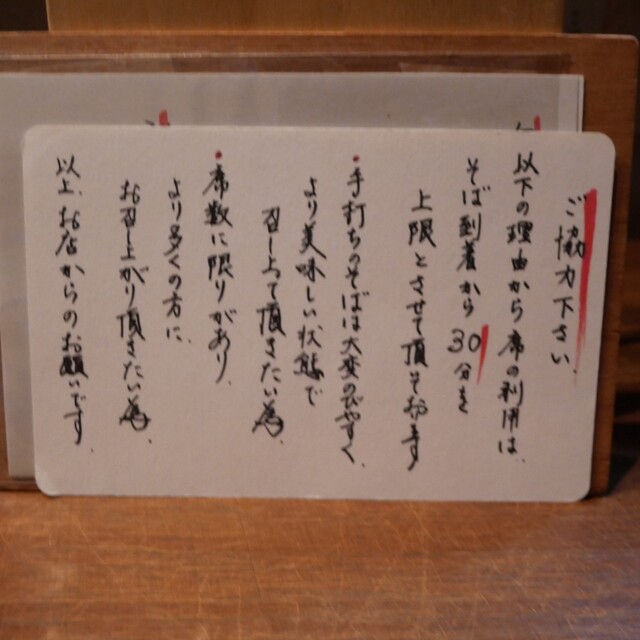 ご協力下さい。
以下の理由から席の利用は、
そば到着から30分を
上限とさせて頂ております
・手打ちのそばは大変のびやすく、
より美味しい状態で
召し上って頂きたい為、
・席数に限りがあり、
より多くの方に、
お召し上がり頂きたい為、
以上、お店からのお願いです。